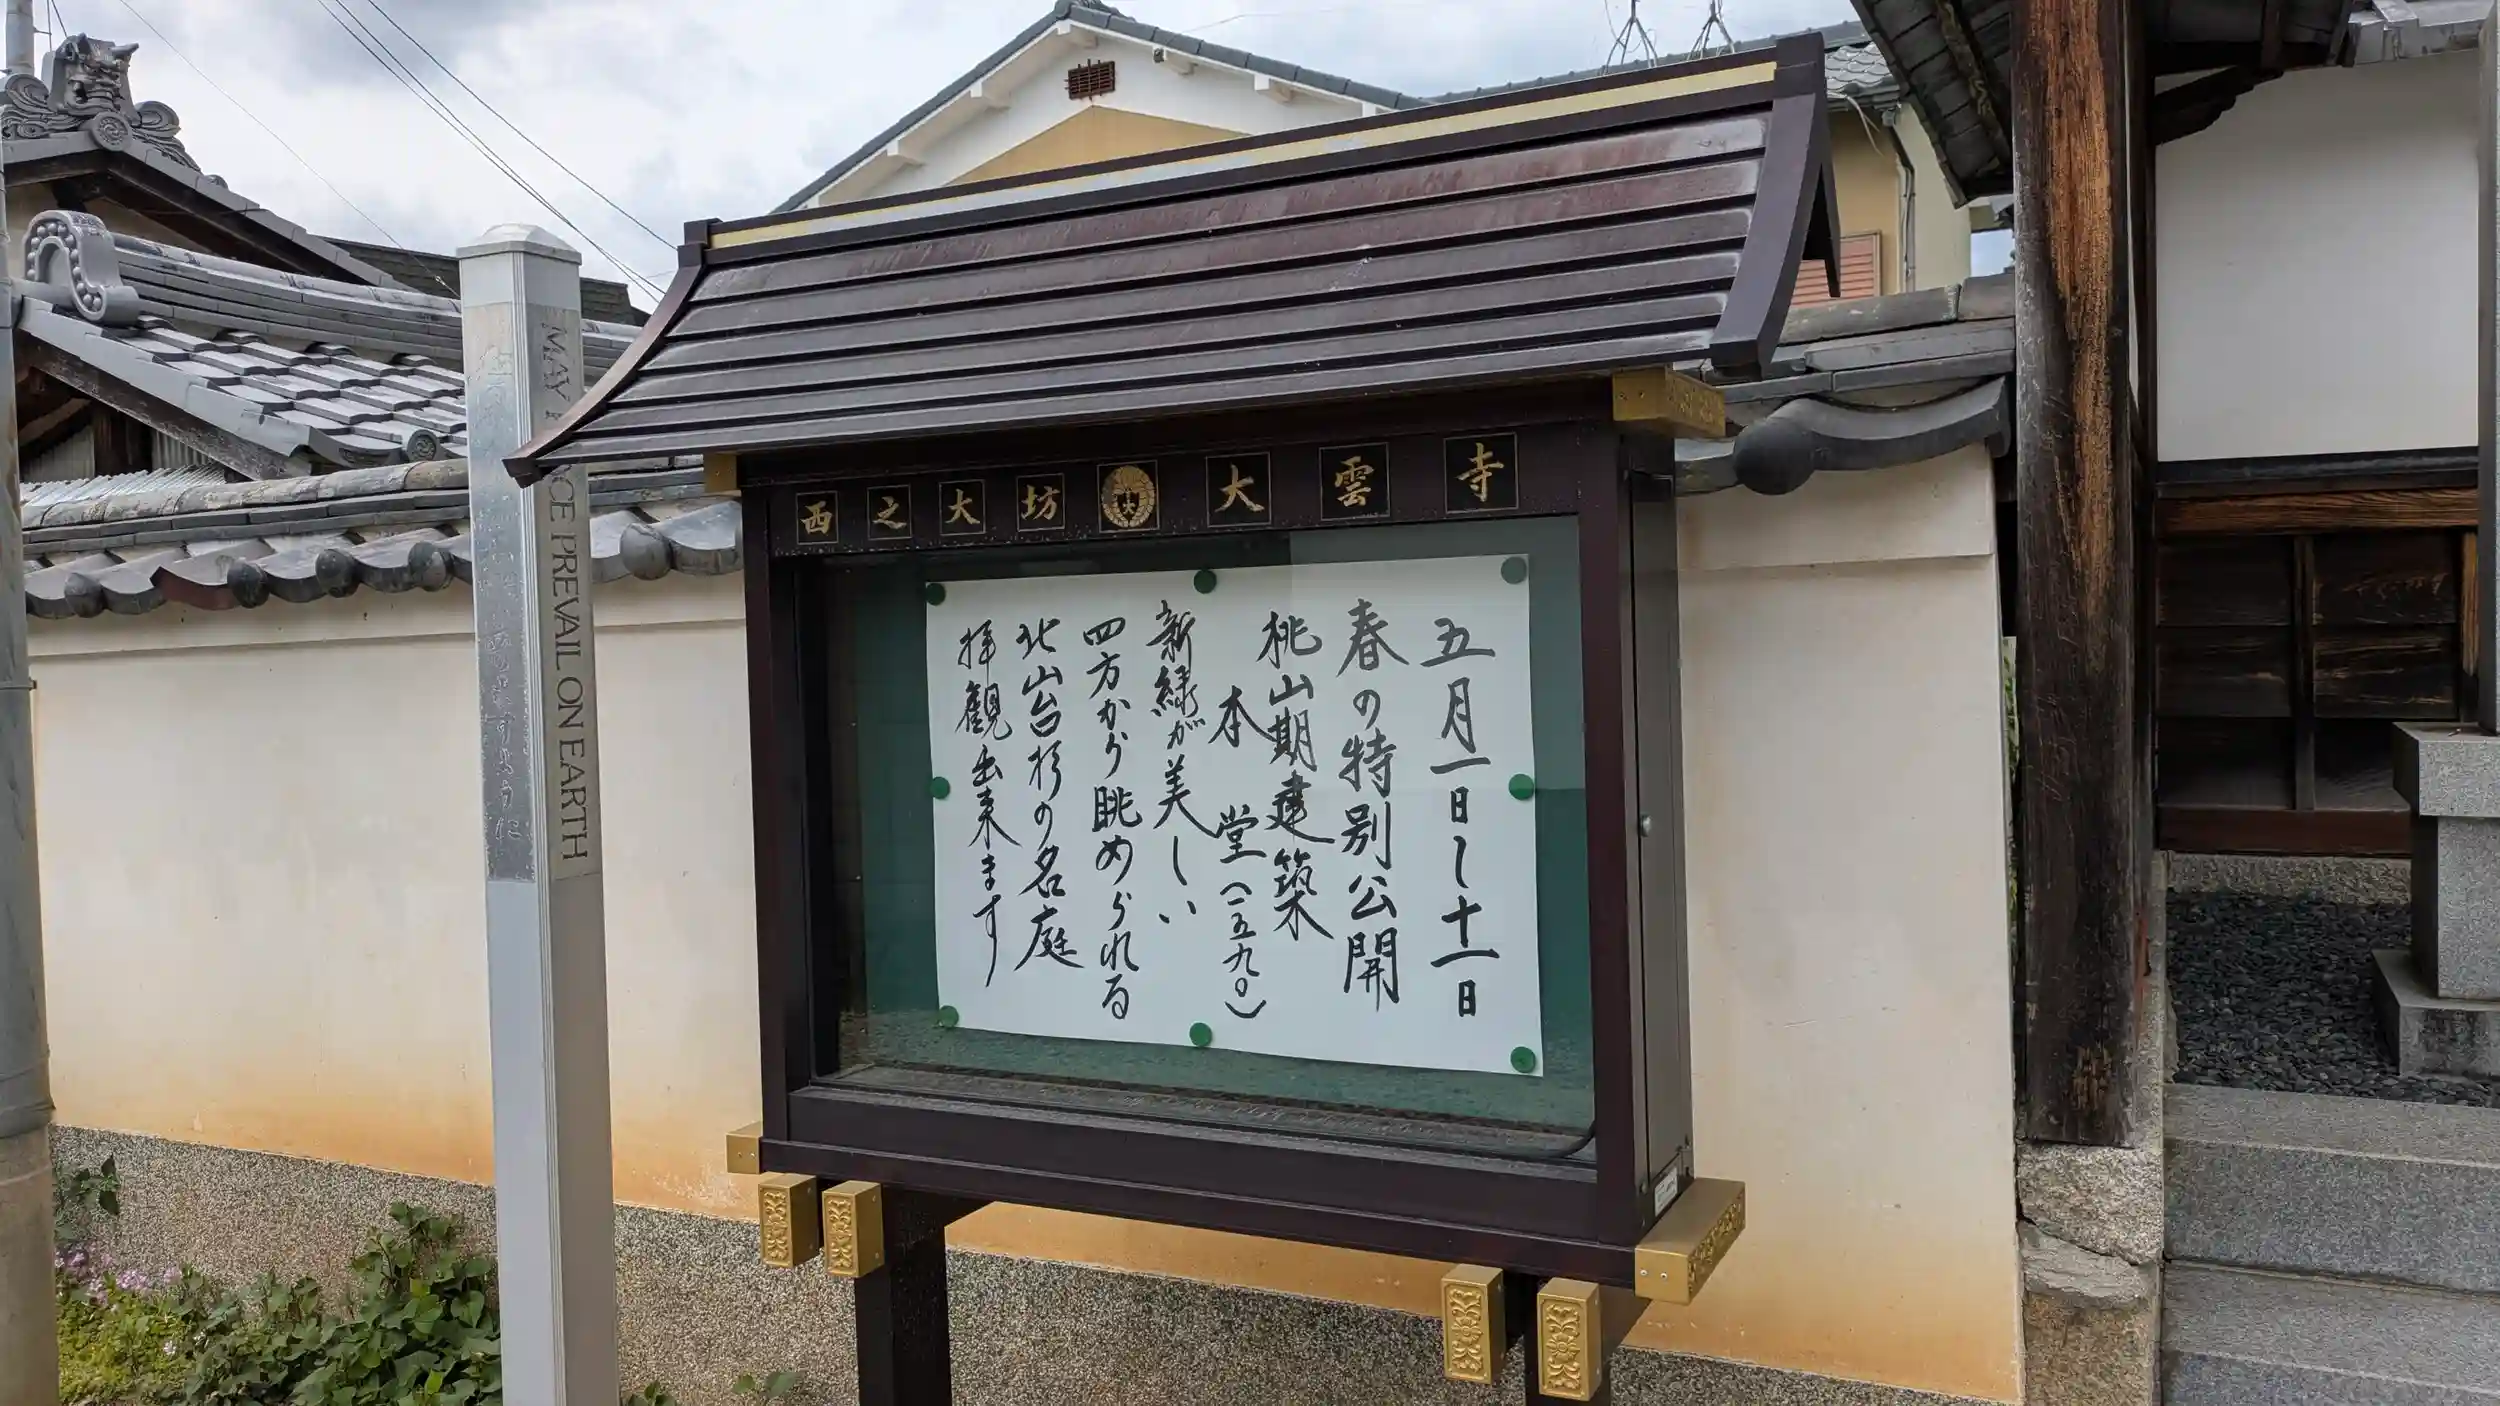 西之大坊 大雲寺
五月一日〜十一日
春の特別公開
桃山期建築
本堂(一五九〇)
新緑が美しい
四方から眺められる
北山台杉の名庭
拝観出来ます
MAY PEACE PREVAIL ON EARTH